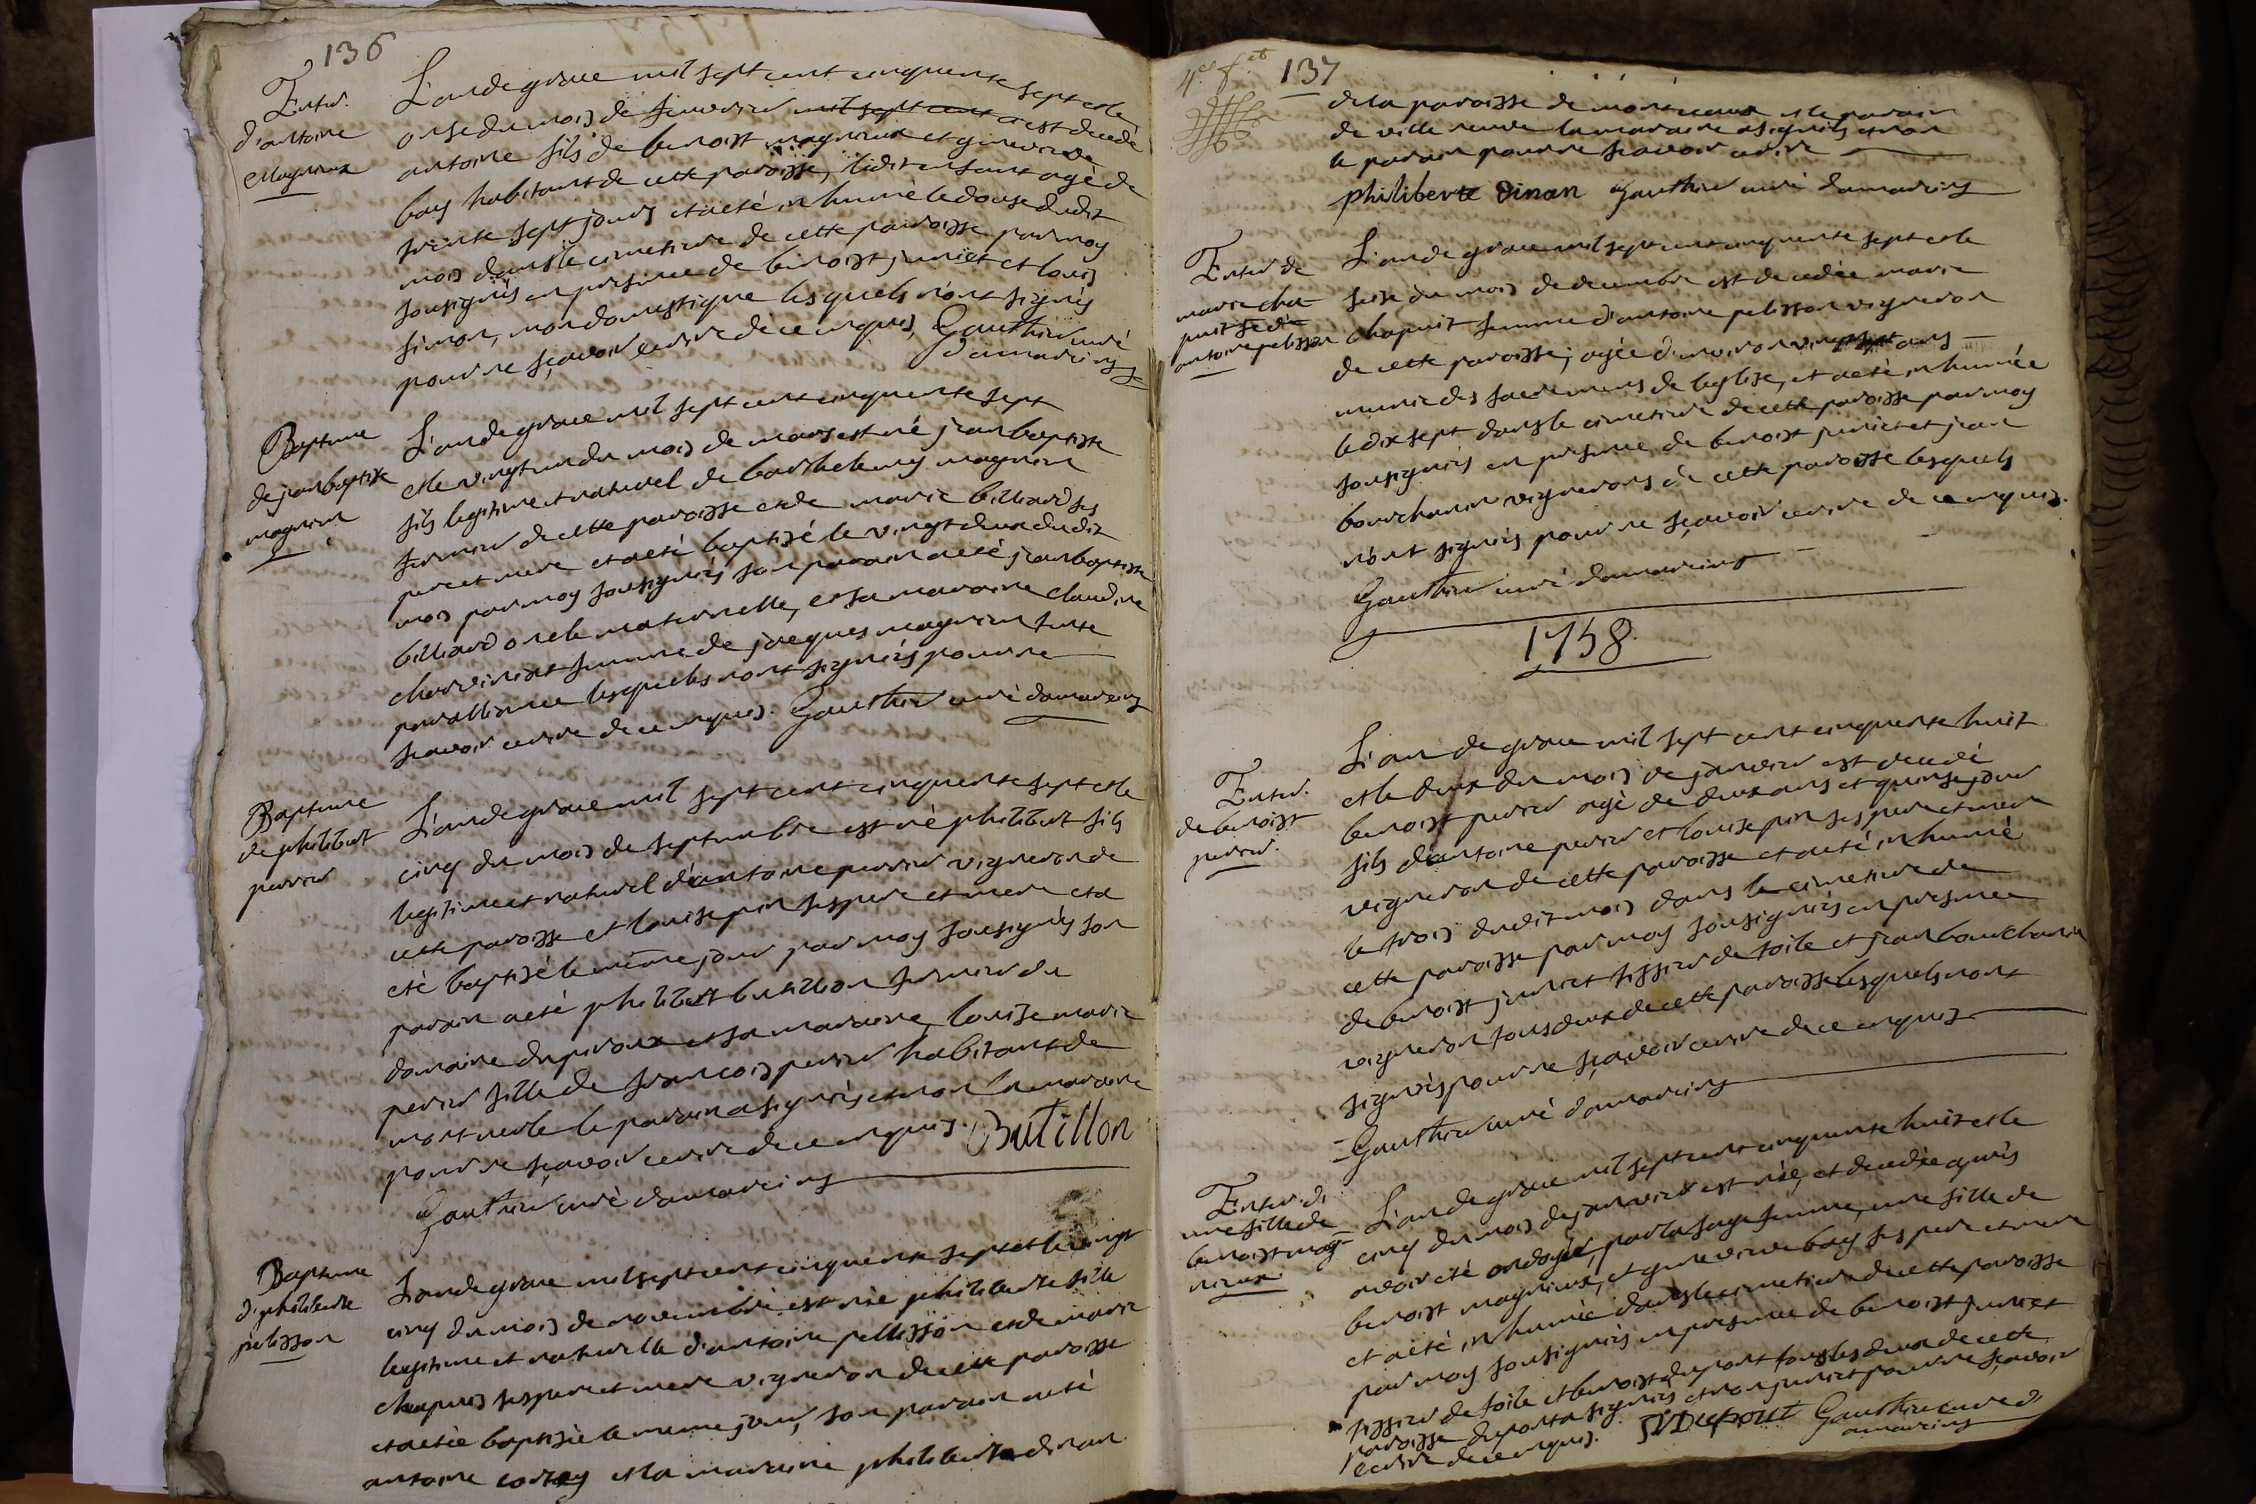 136
Enter.
d'antoine
Magnieux
L'an de grace mil sept cent cinquente sept et le
onse du mois de fenvrier mil sept cent c est decedé
antoine fils de benoist magnieux et genevieve
bay habitant de cette paroisse, ledit enfant agé de
trente sept jours et a eté inhumé le douse dudit
mois dans le cimetiere de cette paroisse par moy
sousignés en presence de benoist juniet et louis
simon, mon domestique lesquels n'ont signés
pour ne sçavoir ecrire de ce enquis, Gauthier curé
d'amareins
Bapteme
de jean baptiste
magnien
L'an de grace mil sept cent cinquente sept
et le vingt un du mois de mars est né jean baptiste
fils legitime et naturel de barthelemy magnien
fermier de cette paroisse et de marie billiard ses
pere et mere et a eté baptisé le vingt deux dudit
mois par moy sousignés son parain a eté jean baptiste
billiard oncle maternelle, et sa maraine claudine
femme de jacques magnien tante
par alliance lesquels n'ont signés pour ne
sçavoir ecrire de ce enquis. Gauthier curé d'amareins
Bapteme
de philibert
perrier
L'an de grace mil sept cent cinquente sept et le
cinq du mois de septembre est né philibert fils
legitime et naturel d'antoine perrier vigneron de
cette paroisse et louise pin ses pere et mere et a
eté baptisé le même jour par moy sousignés son
parain a eté philibert butillion fermier du
domaine du et sa maraine, louise marie
perier fille de francois perrier habitant de
le parain a signés et non la maraine
pour ne sçavoir ecrire de ce enquis. Butillon
Gauthier curé d'amareins
Bapteme
d. philiberte
pelisson
L'an de grace mil sept cent cinquente sept et le vingt
cinq du mois de novembre est née philiberte fille
legitime et naturelle d'antoine pellisson et de marie
chapuis ses pere et mere vigneron de cette paroisse
et a etée baptisée le meme jour, son parain a eté
antoine et la maraine philiberte dinan
137
de la paroisse de et le parain
de ville neuve la maraine a signés et non
le parain pour ne sçavoir ecrire
philiberte Dinan Gauthier curé damareins
Enter de
marie cha-
puit fe d'e
antoine pelisson
L'an de grace mil sept cent cinquente sept et le
seise du mois de decembre est decedée marie
chapuit femme d'antoine pelisson vigneron
de cette paroisse, agée d'environ ans
munie des sacremens de l'eglise, et a eté inhumée
le dix sept dans le cimetiere de cette paroisse par moy
sousignés en presence de benoist juniet et jean
bourchanin vignerons de cette paroisse lesquels
n'ont signés pour ne sçavoir ecrire de ce enquis.
Gauthier curé damareins
1758
Enter.
de benoist
perrier.
L'an de grace mil sept cent cinquente huit
et le deux du mois de janvier est decedé
benoist perrier agé de deux ans et quinse jour
fils d'antoine perrier et louise pin ses pere et mere
vigneron de cette paroisse et a eté inhumé
le trois dudit mois dans le cimetiere de
cette paroisse par moy sousignés en presence
de benoist juniet tissier de toile et jean bourchanin
vigneron tous deux de cette paroisse lesquels n'ont
signés pour ne sçavoir ecrire de ce enquis
Gauthier curé damareins
Enter. d.
une fille de
benoist mag-
nieux
L'an de grace mil sept cent cinquente huit et le
cinq du mois de janvier est née, et decedée après
avoir eté ondoyé, par la sage femme, une fille de
benoist magnieux, et genevieve bay ses pere et mere
et a eté inhumée dans le cimetiere de cette paroisse
par moy sousignés en presence de benoist juniet
tissier de toile et benoist dupont tous les deux de cette
paroisse dupont a signés et non juniet pour ne sçavoir
ecrire de ce enquis. Dupont Gauthier curé d.
amareins